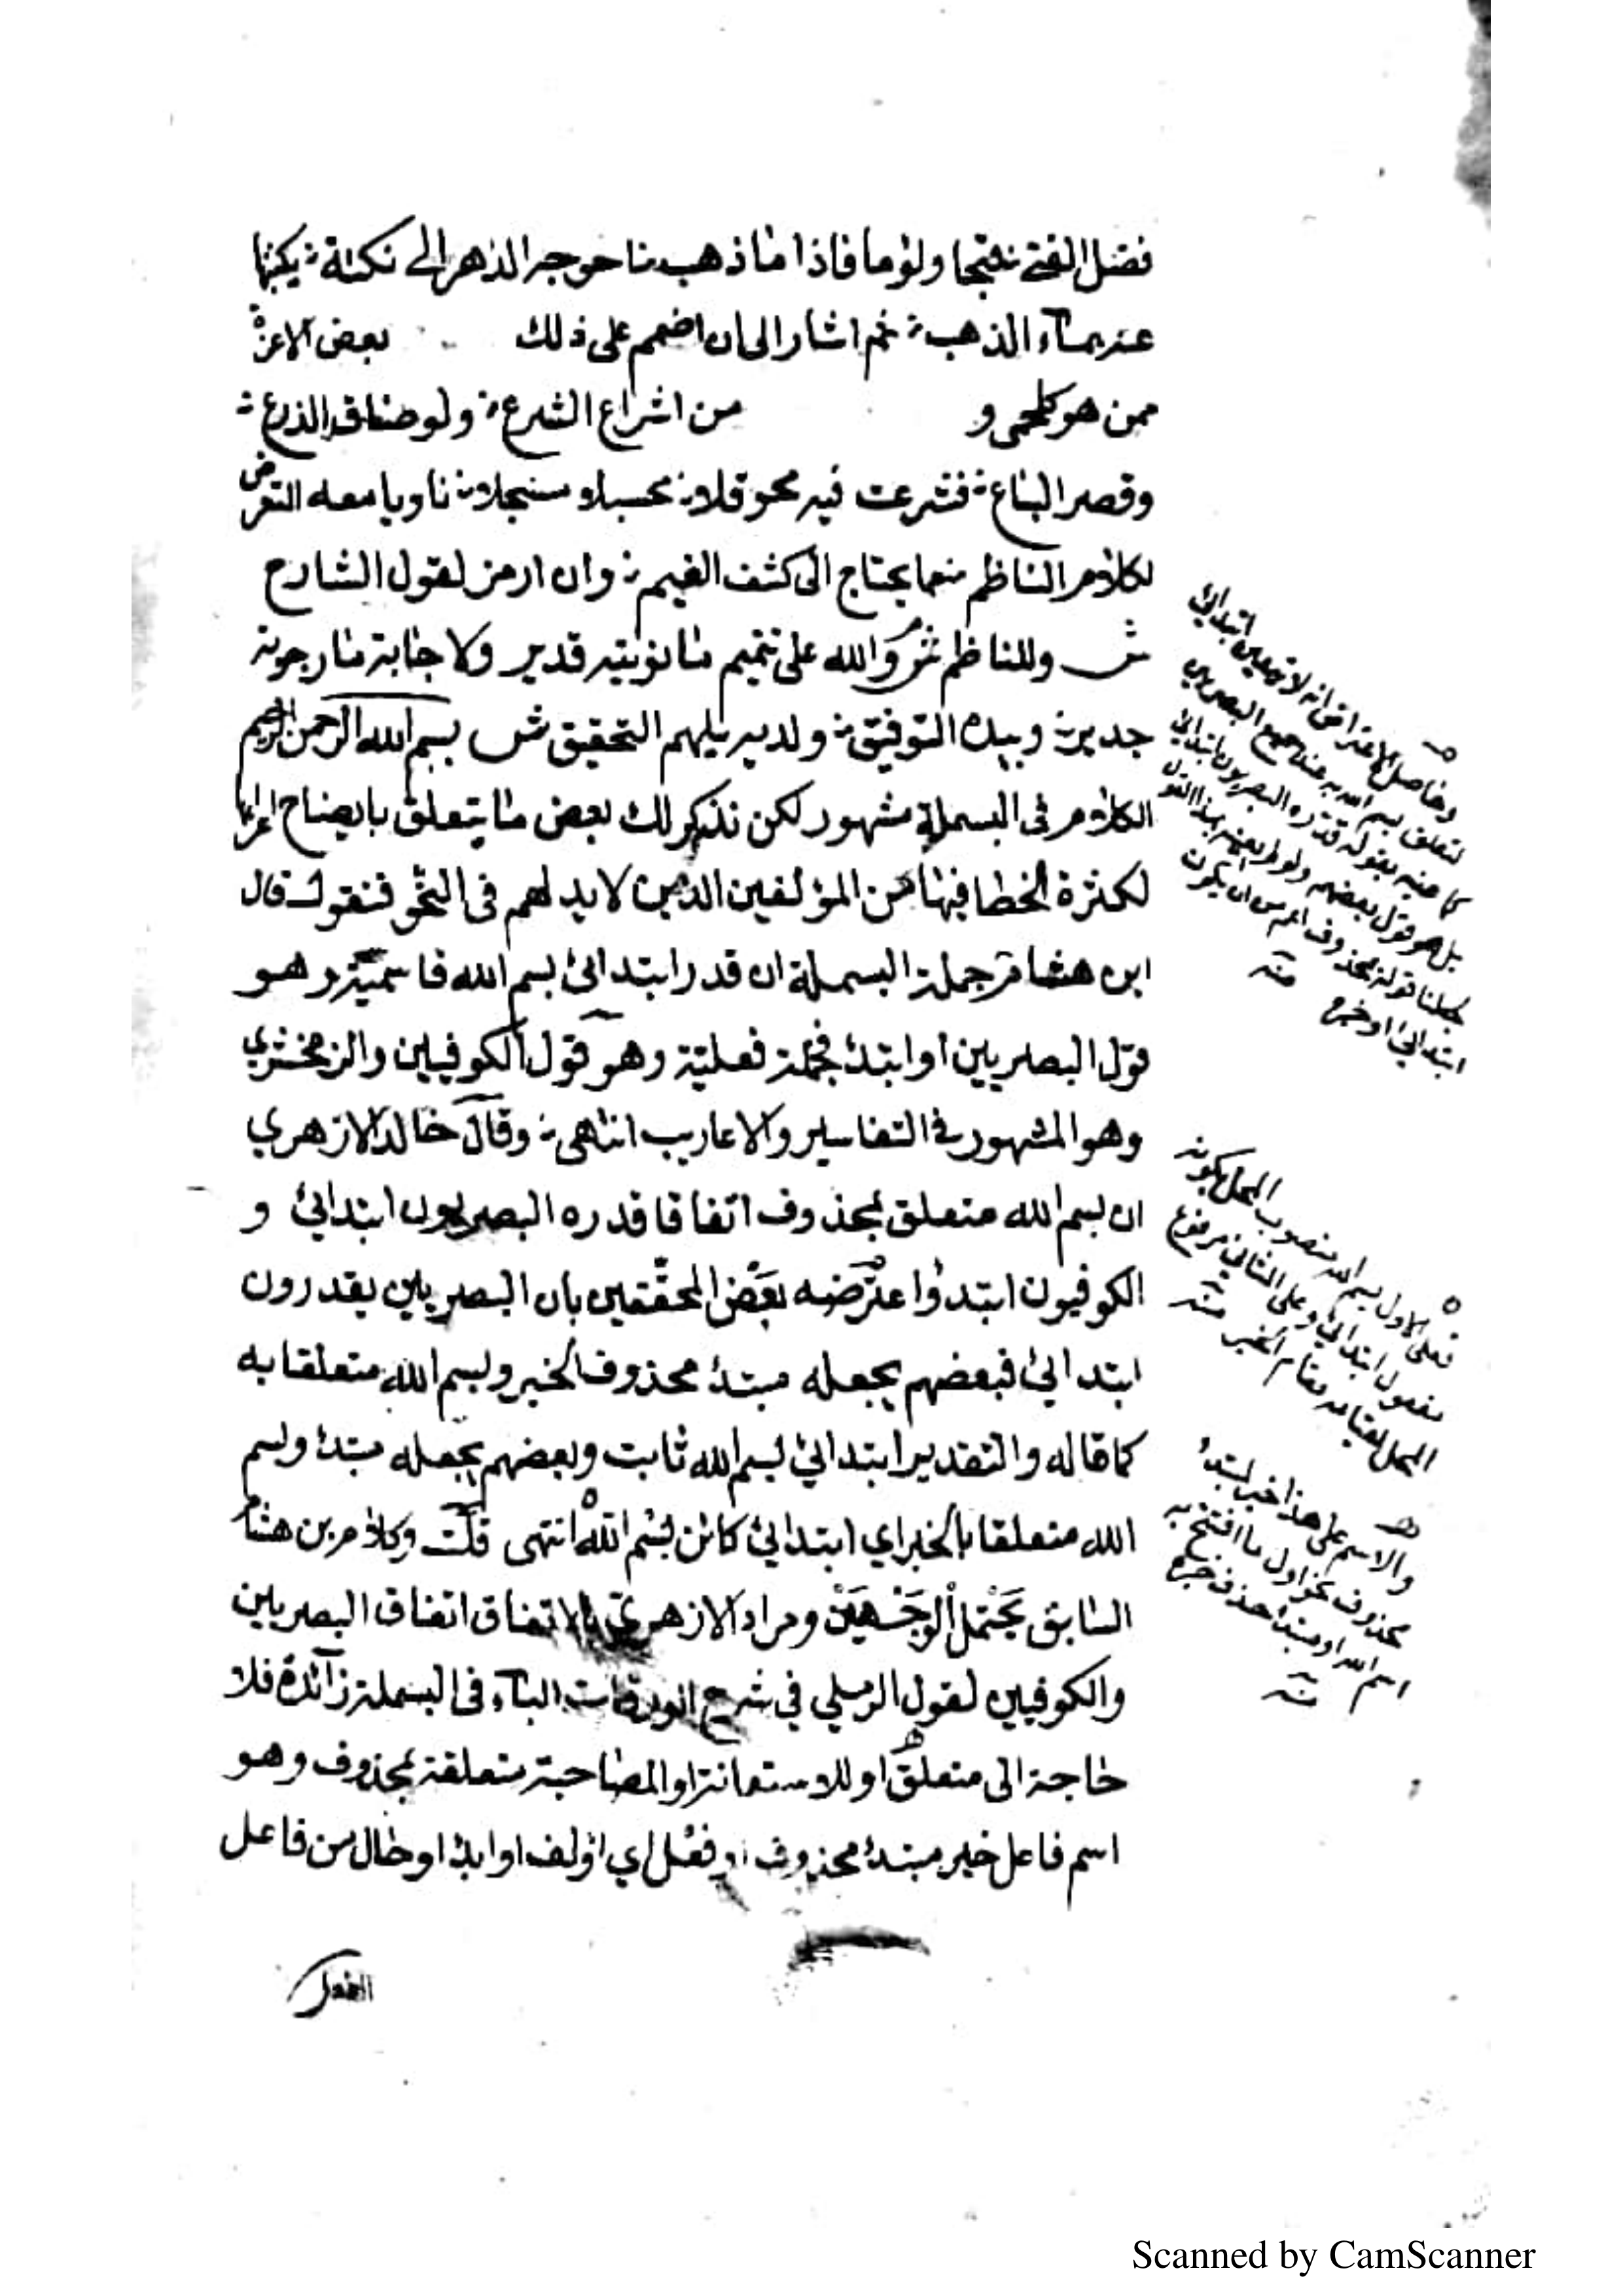 فضل الفتى نفتجا ولؤما فاذا ما ذهب بنا حوجه الدهر الى نكتة يكبتها
عنه بماء الذهب ثم اشار الى ان اضمم على ذلك بعض الاعزة
ممن هو كلحمى و من اشراع الشرع ولو ضاق الذرع
وقصر الباع فشرعت فيه محوقلا محسبلا سبحلا ناويا معه التعرض
لكلام الناظم مما يحتاج الى كشف الغيم وان ارمز لقول الشارح
ش وللناظم ش والله على تتميم ما نويته قدير ولاجابة ما رجوته
جدير وبيده التوفيق ولديه يلهم التحقيق ش بسم الله الرحمن الرحيم
الكلام فى البسملة مشهور لكن نذكر لك بعض ما يتعلق بايضاح اعرابها
لكثرة الخطا فيها من المؤلفين الذين لا يد لهم فى النحو فنقول قال
ابن هشام جملة البسملة ان قدر ابتدائ بسم الله فاسمية وهو
قول البصريين او ابتدئ فجملة فعلية وهو قول الكوفيين والزمخشري
وهو المشهور فى التفاسير والاعاريب انتهى وقال خالد الازهري
ان بسم الله متعلق بمحذوف اتفاقا قدره البصريون ابتدائ و
الكوفيون ابتدؤا عترضه بعض المحققين بان البصريين يقدرون
ابتدائ فبعضهم يجعله مبتدئ محذوف الخبر وبسم الله متعلقا به
كما قاله والتقدير ابتدائي بسم الله ثابت وبعضهم يجعله مبتدئ وبسم
الله متعلقا بالخبر اي ابتدائ كائن بسم الله انتهى قلت وكلام بن هشام
السابق يحتمل الوجهين ومراد الازهري بالاتفاق اتفاق البصريين
والكوفيين لقول الرملي في شرح الورقات الباء فى البسملة زآئدة فلا
حاجة الى متعلق او للاستعانة او المصاحبة متعلقة بمحذوف وهو
اسم فاعل خبر مبتدئ محذوف او فعل اي اؤلف او ابدؤ او حال من فاعل
وحاصل الاعتراض انه لا يتعين ابتدائي
لتعلق بسم الله به عند جميع البصريين
كما منه بقوله قدره البصريون ابتدائي
بل هو قول بعضهم
ابتدائي او خبره منه
فعلى الاول بسم الله منصوب المحل بكونه
مفعول ابتدائي وعلى الثاني مرفوع
المحل لقيامه مقام الخبر منه
والاسم على هذا خبر لمبتدئ
محذوف نحو اول ما افتتح به
اسم الله او مبتدا حذف خبره
منه
Scanned by CamScanner